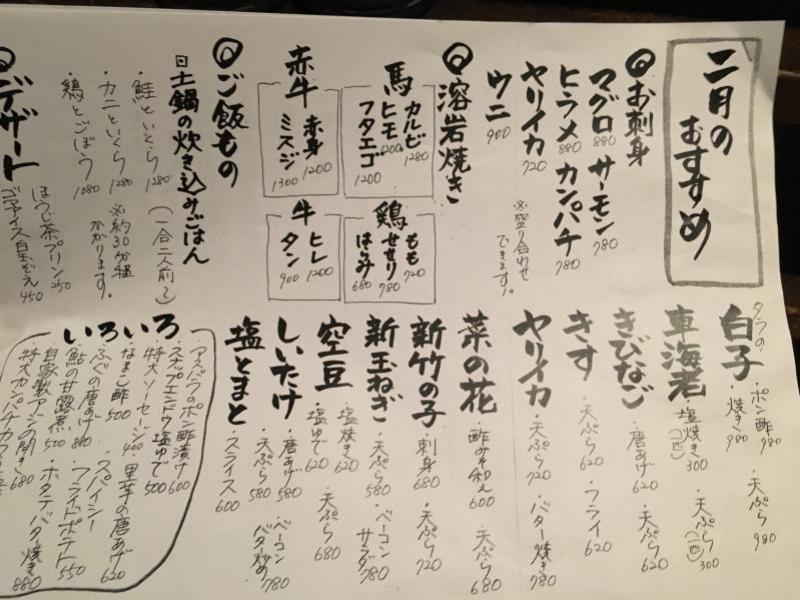 二月の
おすすめ
◎お刺身
マグロ 880 サーモン 780
ヒラメ 880 カンパチ 780
ヤリイカ 720
ウニ 900
※盛り合わせ
できます。
◎溶岩焼き
馬
カルビ 1280
ヒモ 1200
フタエゴ 1200
鶏
もも 720
せせり 780
はらみ 680
赤牛
赤身 1200
ミスジ 1300
牛
ヒレ 1200
タン 900
◎ご飯もの
土鍋の炊き込みごはん
(一合二人前〜)
・鮭といくら 1280
・カニといくら 1280
・鶏とごぼう 1080
※約30分程
かかります。
◎デザート
ほうじ茶プリン 250
ゴマアイス白玉ぞえ 450
タラの
白子 ・ポン酢 980 ・天ぷら 980
・焼き 980
車海老 塩焼き(一匹) 300 ・天ぷら(一匹) 300
きびなご ・唐あげ 620 ・天ぷら 620
きす ・天ぷら 620 ・フライ 620
ヤリイカ ・天ぷら 720 ・バター焼き 780
菜の花 ・酢みそ和え 600 ・天ぷら 680
新竹の子 ・刺身 680 ・天ぷら 720
新玉ねぎ ・天ぷら 580 ・ベーコンサラダ 780
空豆 ・塩焼き 620 ・天ぷら 680
・塩ゆで 620
しいたけ ・唐あげ 580 ・ベーコンバター炒め 780
・天ぷら 580
塩とまと ・スライス 600
いろいろ
・アスパラのポン酢漬け 600
・スナップエンドウ塩ゆで 500
・特大ソーセージ 400 ・里芋の唐あげ 620
・なまこ酢 500 ・スパイシー
フライドポテト 550
・ふぐの唐あげ 880
・鮎の甘露煮 500 ・ホタテバター焼き 880
・自家製
の開き 680
・特大カンパチカマ